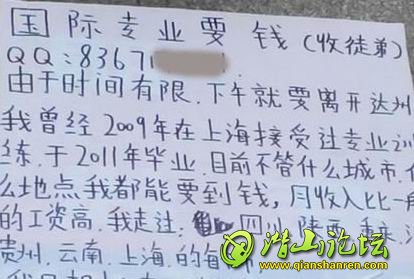 国际专业要钱(收徒弟)
QQ:8367
由于时间有限.下午就要离开达州
我曾经2009年在上海接受过专业训
练.于2011年毕业.目前不管什么城市.什
么地点我都能要到钱,月收入比一般
的工资高.我走过.四川.陕西.重庆.
贵州.云南.上海.的每
潜山论坛
www.qianshanren.com